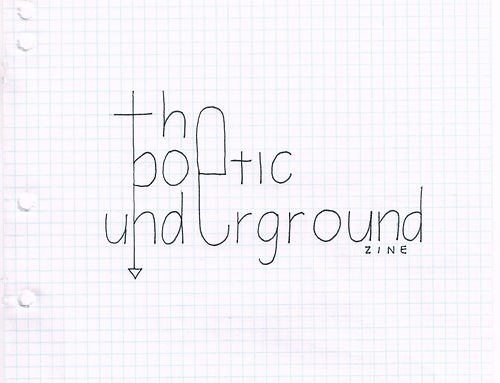 the
poetic
underground
ZINE